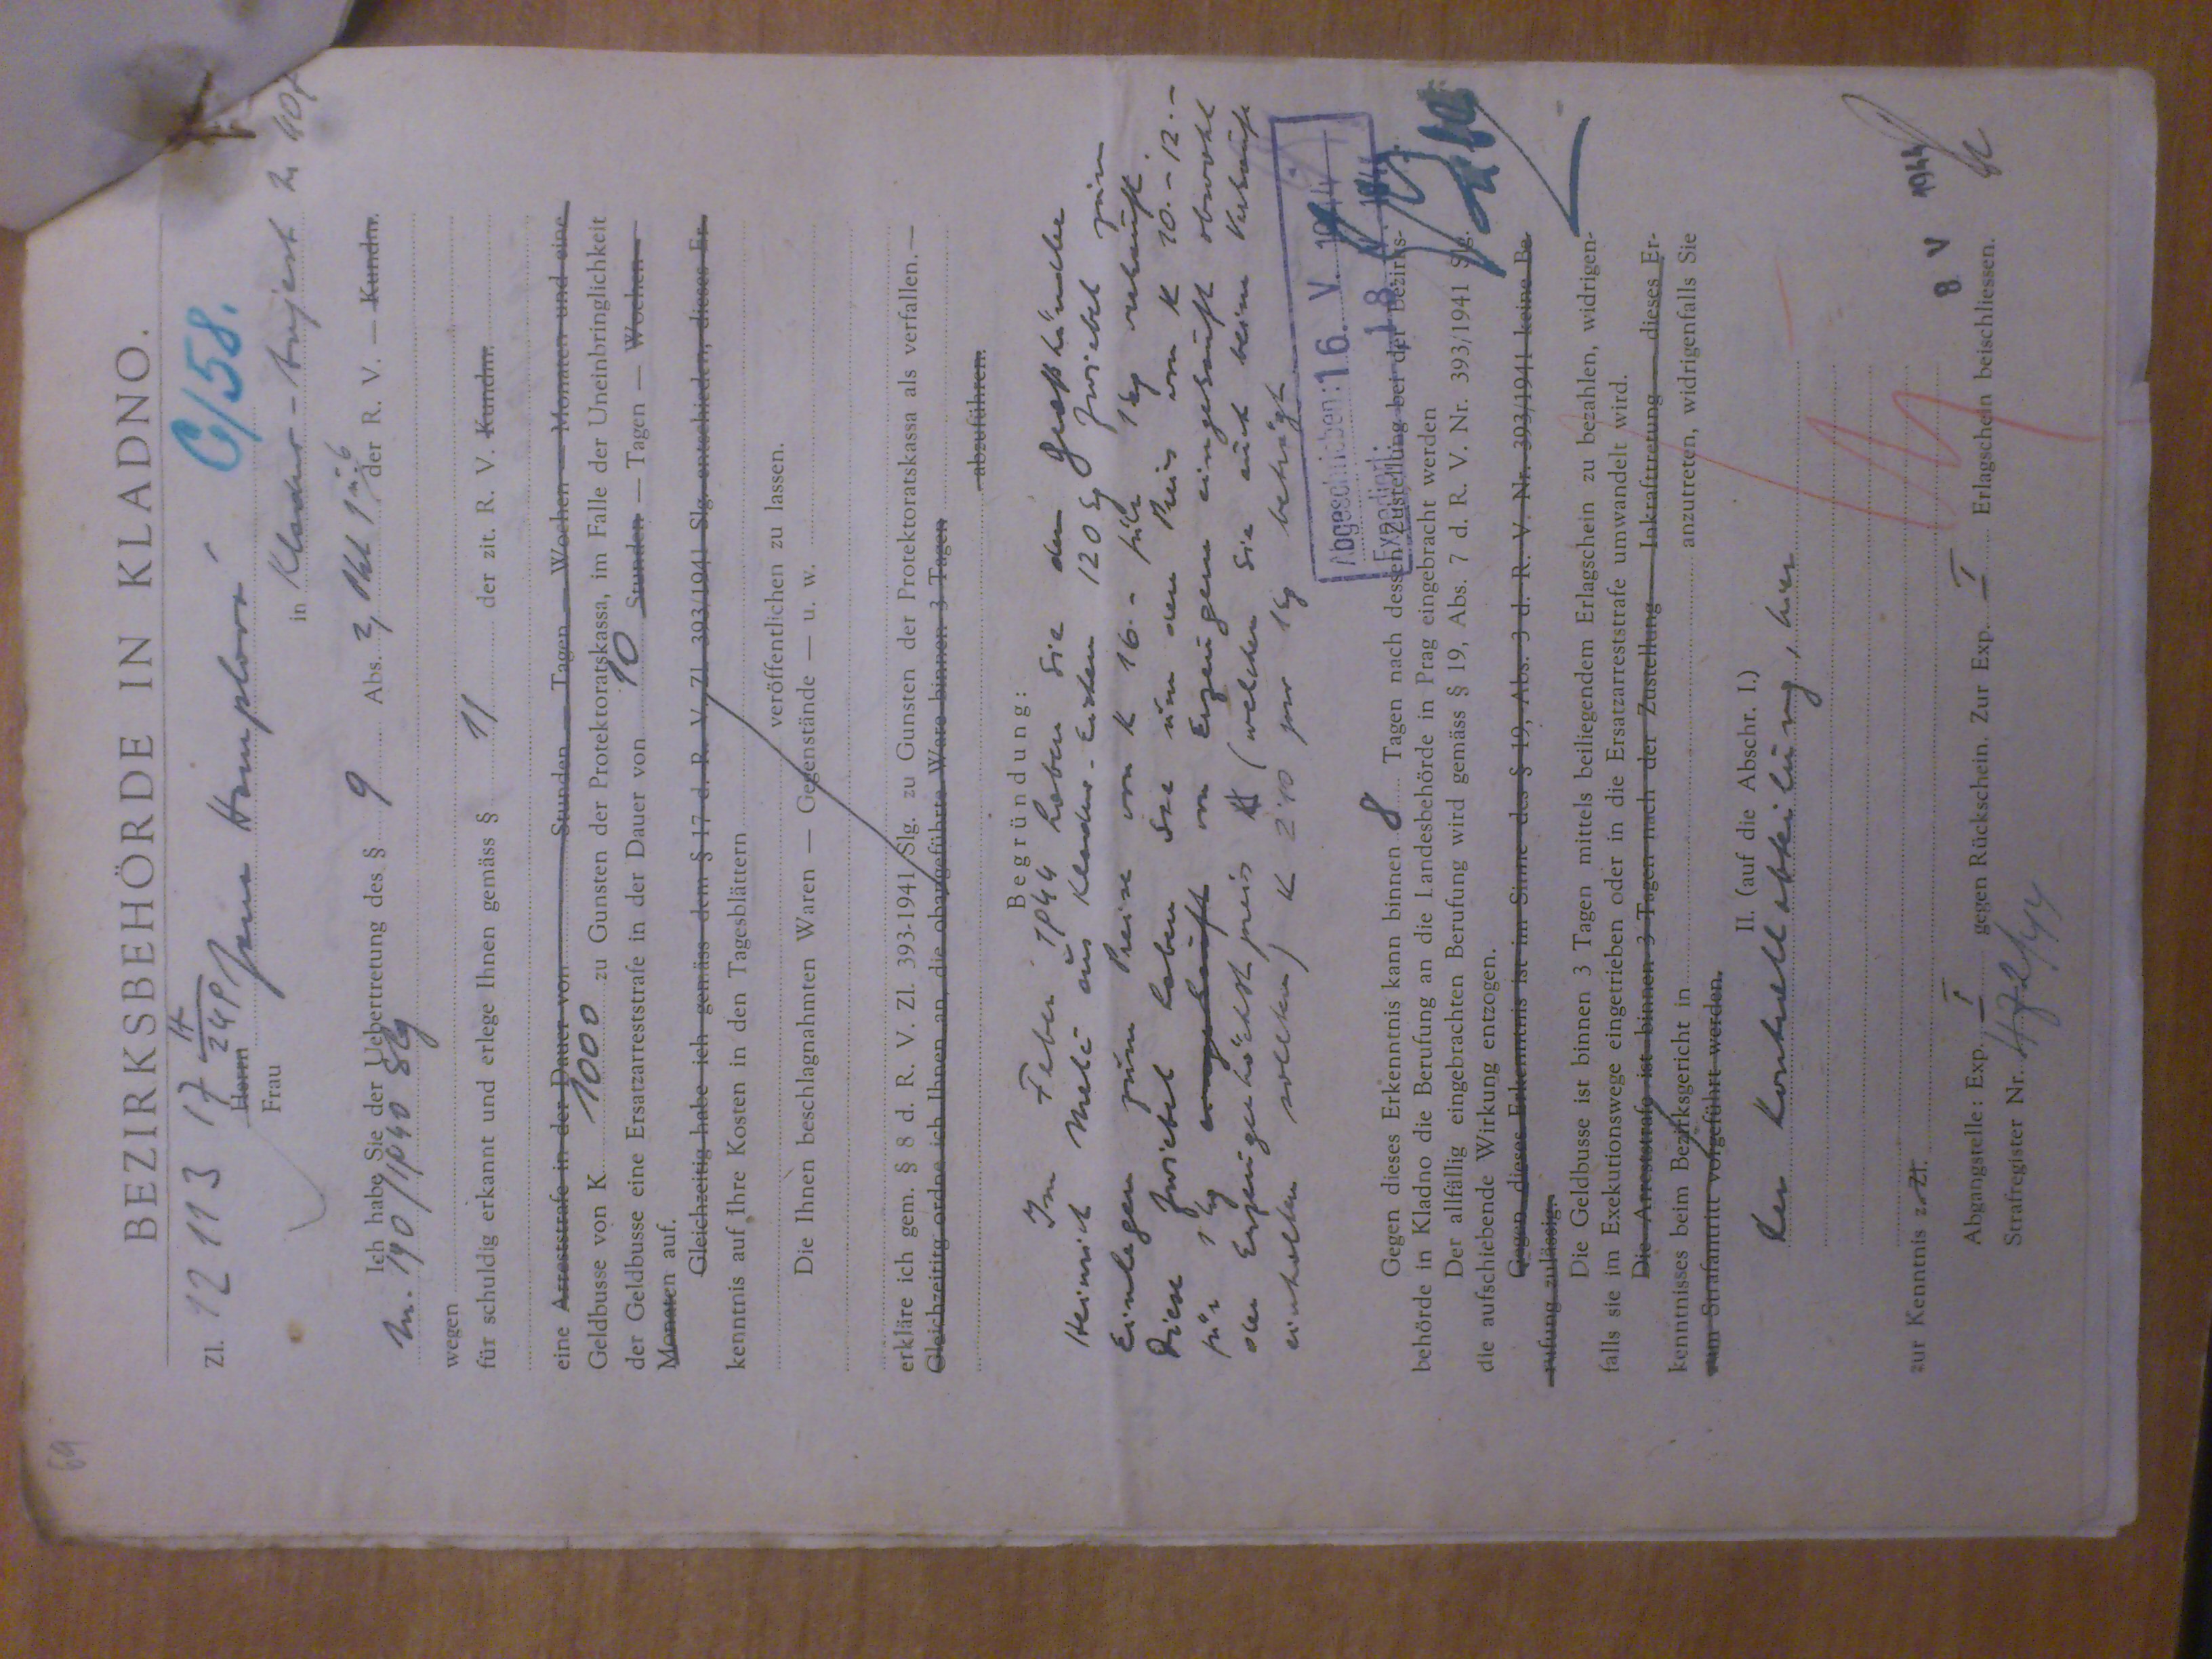 69
BEZIRKSBEHÖRDE IN KLADNO.
Zl. 12 113 17 II
C/58.
Herrn Jana Hamplová
Frau
in Kladno - Aujest Nr 407
Ich habe Sie der Uebertretung des § 9 Abs. 2, Pkt 1 u. 6 der R. V. — Kundm.
Nr. 190/1940 Slg
wegen
für schuldig erkannt und erlege Ihnen gemäss § 11 der zit. R. V. Kundm.
eine Arreststrafe in der Dauer von Stunden — Tagen — Wochen — Monaten und eine
Geldbusse von K 1000 zu Gunsten der Protektoratskassa, im Falle der Uneinbringlichkeit
der Geldbusse eine Ersatzarreststrafe in der Dauer von 10 Stunden — Tagen — Wochen
Monaten auf.
Gleichzeitig habe ich gemäss dem § 17 d. R. V. Zl. 393/1941 Slg. entschieden, dieses Er-
kenntnis auf Ihre Kosten in den Tagesblättern
veröffentlichen zu lassen.
Die Ihnen beschlagnahmten Waren — Gegenstände — u. w.
erkläre ich gem. § 8 d. R. V. Zl. 393-1941 Slg. zu Gunsten der Protektoratskassa als verfallen.—
Gleichzeititg ordne ich Ihnen an, die obangeführte Ware binnen 3 Tagen
abzuführen.
Begründung:
Im Feber 1944 haben Sie dem Großhändler
Heinrich aus Kladno - Eichen 120 kg Zwiebel zum
Einlegen zum Preise von K 16.- für 1 kg verkauft.
Diese Zwiebel haben Sie um den Preis von K 10.-- 12.-
für 1 kg eingekauft von Erzeugern eingekauft obwohl
der Erzeugerhöchstpreis K (welchen Sie auch beim Verkaufe
einhalten sollten) K 2'10 pro 1 kg beträgt.
Abgeschrieben: 16. V. 1944
Expediert: 18. V. 1944
Gegen dieses Erkenntnis kann binnen 8 Tagen nach dessen Zustellung bei der Bezirks-
behörde in Kladno die Berufung an die Landesbehörde in Prag eingebracht werden
Der allfällig eingebrachten Berufung wird gemäss § 19, Abs. 7 d. R. V. Nr. 393/1941 Slg.
die aufschiebende Wirkung entzogen.
Gegen dieses Erkenntnis ist im Sinne des § 19, Abs. 3 d. R. V. Nr. 393/1941 keine Be-
rufung zulässig.
Die Geldbusse ist binnen 3 Tagen mittels beiliegendem Erlagschein zu bezahlen, widrigen-
falls sie im Exekutionswege eingetrieben oder in die Ersatzarreststrafe umwandelt wird.
Die Arreststrafe ist binnen 3 Tagen nach der Zustellung — Inkrafttretung — dieses Er-
kenntnisses beim Bezirksgericht in anzutreten, widrigenfalls Sie
zum Strafantritt vorgeführt werden.
II. (auf die Abschr. I.)
Der Kontrollabteilung, hier
zur Kenntnis z. Zl.
8 V 1944
Abgangstelle: Exp. I gegen Rückschein. Zur Exp. I Erlagschein beischliessen.
Strafregister Nr. 472/44